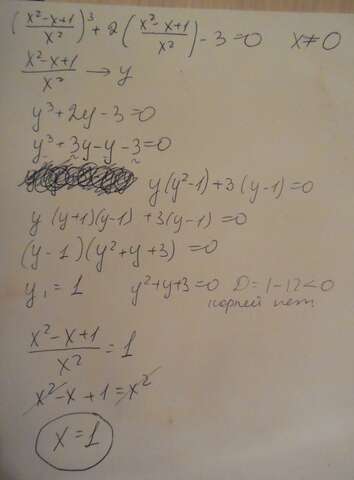 ((x²-x+1)/x²)³ + 2((x²-x+1)/x²) - 3 = 0 x ≠ 0
(x²-x+1)/x² → y
y³ + 2y - 3 = 0
y³ + 3y - y - 3 = 0
y(y²-1) + 3(y-1) = 0
y(y+1)(y-1) + 3(y-1) = 0
(y-1)(y²+y+3) = 0
y₁ = 1 y²+y+3=0 D = 1-12<0
корней нет
(x²-x+1)/x² = 1
x²-x+1 = x²
x = 1